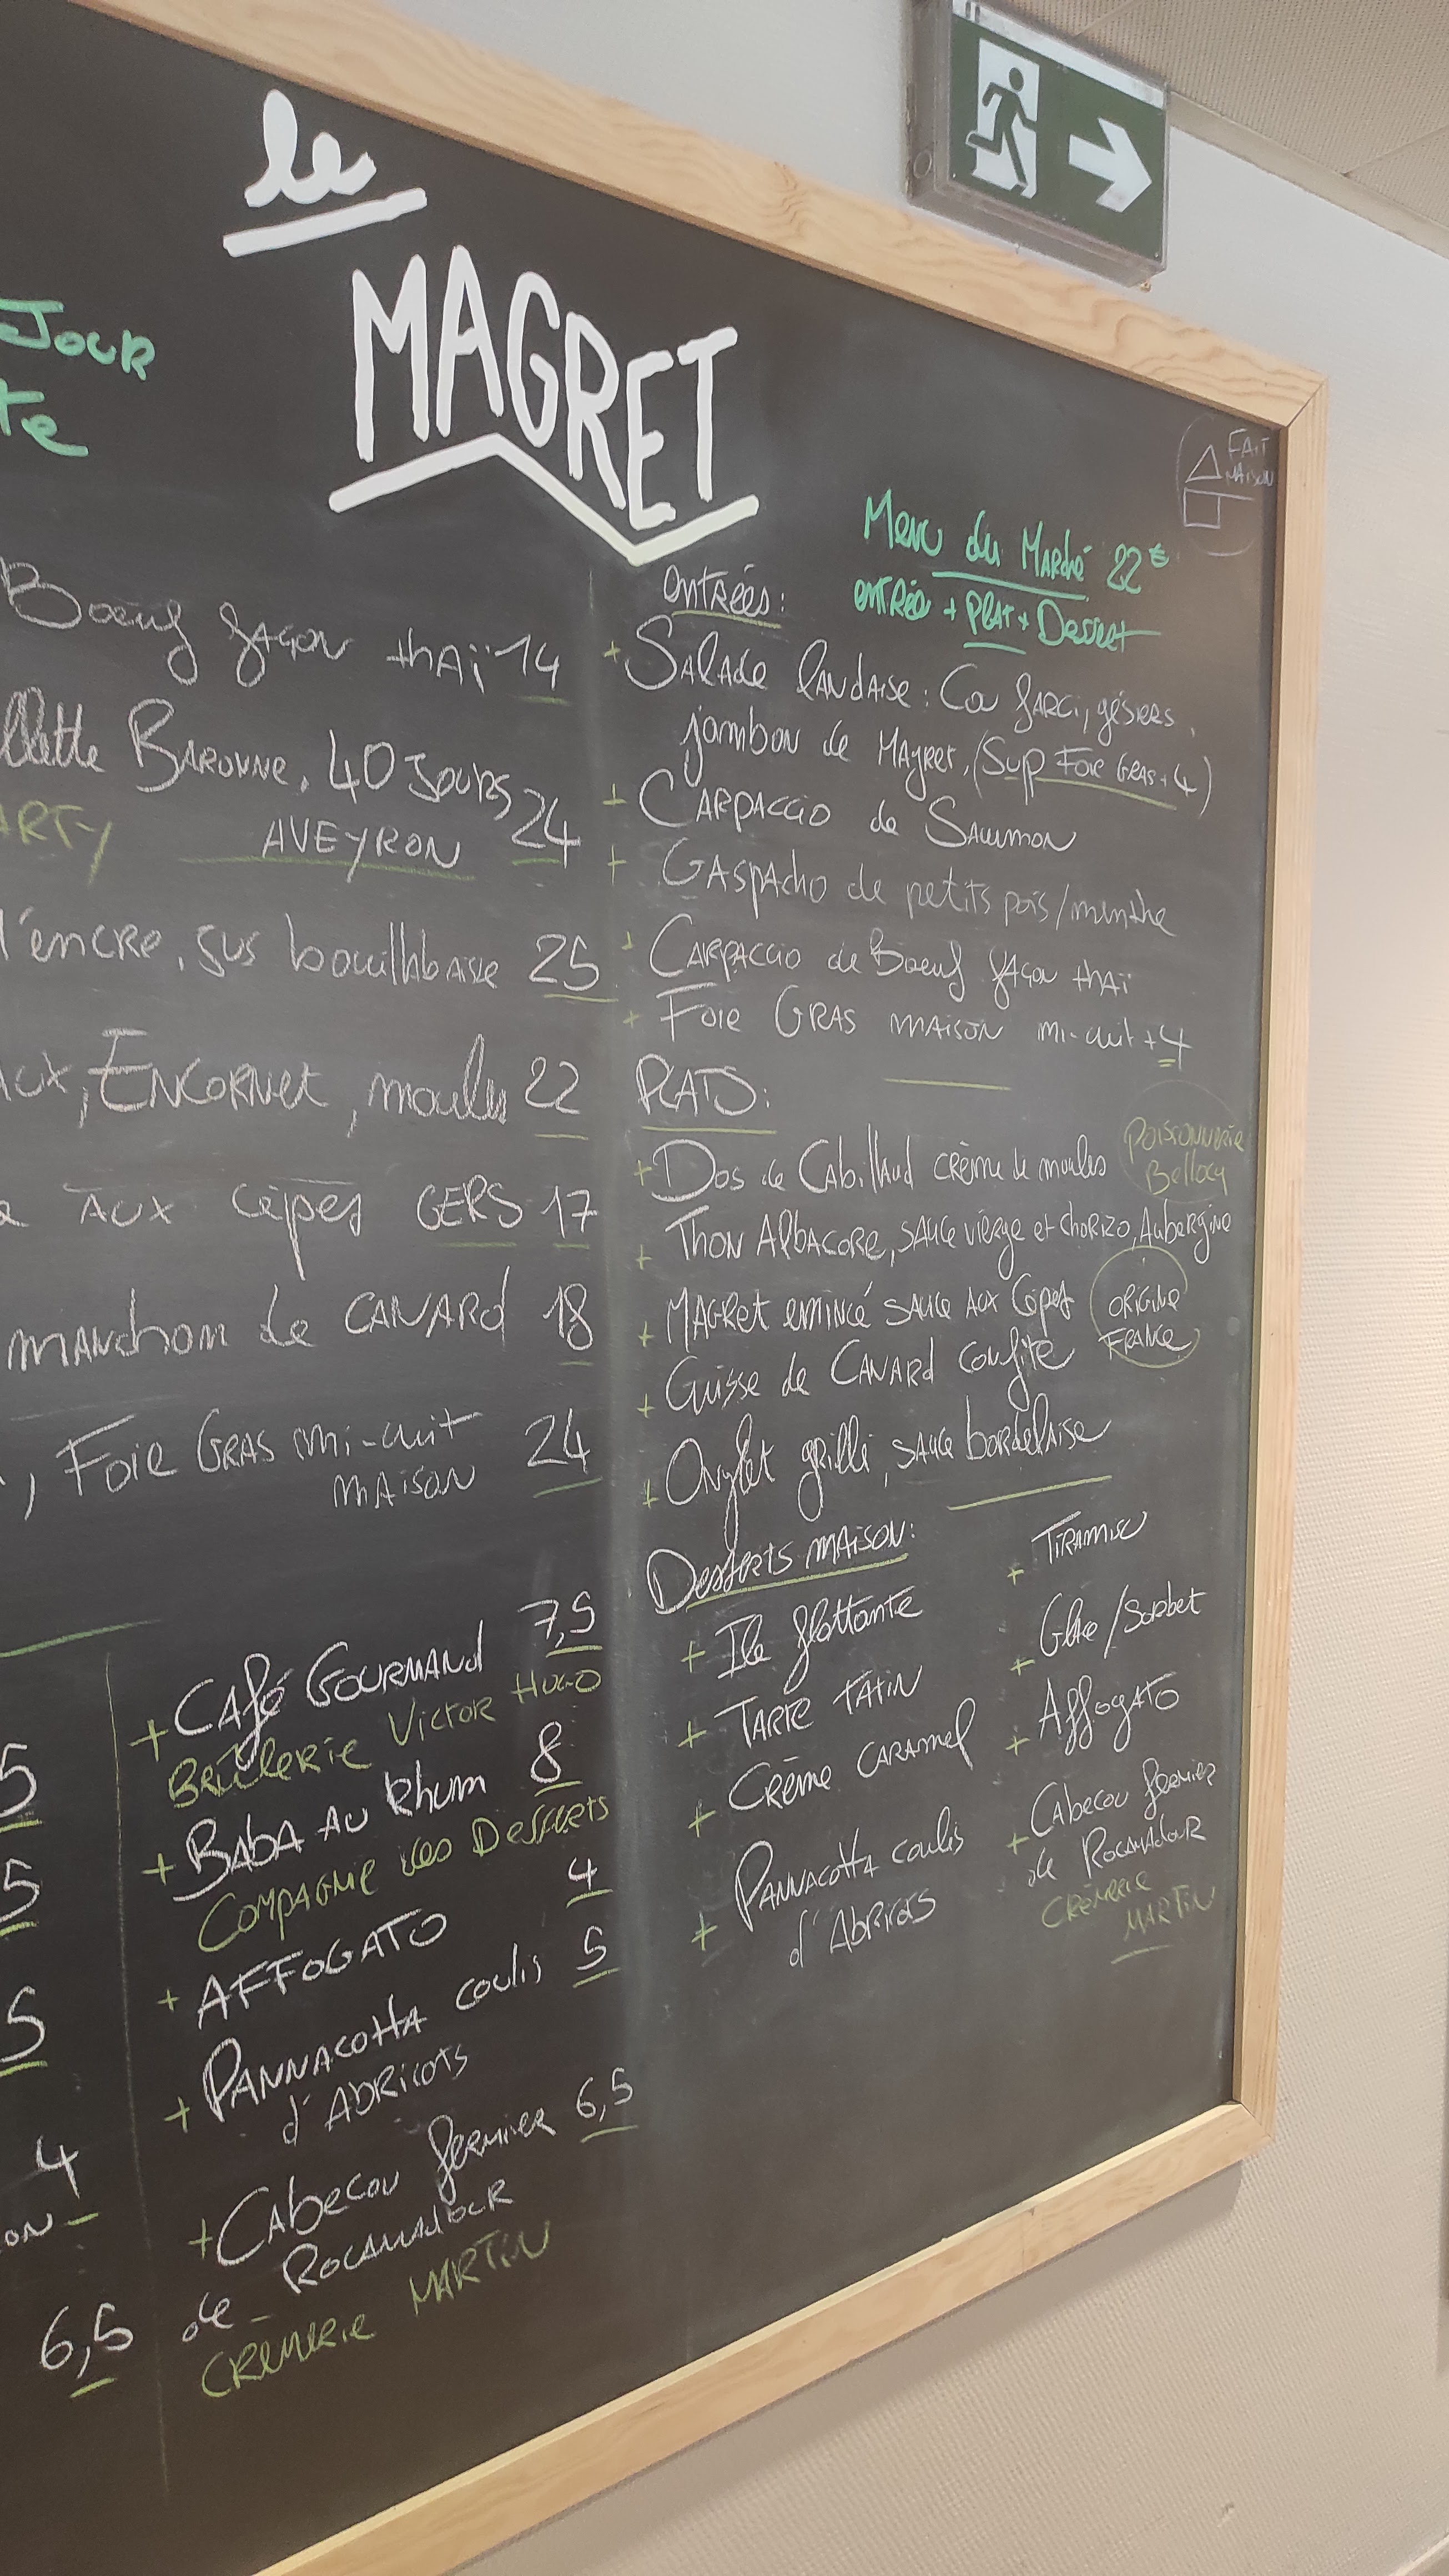 le
MAGRET
Jour
te
Bœuf façon thaï 14
llette Baronne, 40 Jours 24
ARTY AVEYRON
l'encre, jus bouillabaisse 25
aux, Encornet, moules 22
aux cèpes GERS 17
manchon de Canard 18
, Foie Gras mi-cuit 24
maison
+ Café Gourmand 7,5
Brûlerie Victor Hugo
+ Baba au Rhum 8
Compagnie des Desserts
+ AFFOGATO 4
+ Pannacotta coulis 5
d'Abricots
+ Cabecou fermier 6,5
de Rocamadour
Crèmerie MARTIN
5
5
5
4
6,5
FAIT
MAISON
Menu du Marché 22€
entrée + Plat + Dessert
entrées:
+ Salade landaise: Cou farci, gésiers,
jambon de Magret, (Sup Foie Gras + 4)
+ Carpaccio de Saumon
+ Gaspacho de petits pois/menthe
+ Carpaccio de Bœuf façon thaï
+ Foie Gras maison mi-cuit +4
PLATS:
+ Dos de Cabillaud crème de moules
Poissonnerie
Bellocq
+ Thon Albacore, sauce vierge et chorizo, Aubergine
+ Magret emincé sauce aux Cèpes
+ Cuisse de Canard confite
ORIGINE
FRANCE
+ Onglet grillé, sauce bordelaise
Desserts maison:
+ Ile flottante
+ Tarte Tatin
+ Crème Caramel
+ Pannacotta coulis
d'Abricots
+ Tiramisu
+ Glace/Sorbet
+ Affogato
+ Cabecou fermier
de Rocamadour
Crèmerie
MARTIN